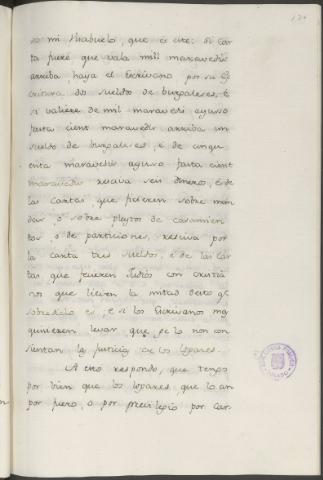 so mi Visabuelo, que es este: Si Car
ta fuere que vala mill maravedis
arriba, haya el Escrivano por su Es
critura dos sueldos de burgaleses, è
si valiere de mil maravedi ayuso
fasta cient maravedis arriba un
sueldo de burgaleses, e de cinqu
enta maravedis ayuso fasta cient
maravedis reciva seis dineros, è de
las cartas, que ficieren sobre man
das, ò sobre pleytos de casamien
tos, ò de particiones, reciva por
la carta tres sueldos, è de las car
tas que ficieren Judios con cristia
nos que lieven la mitad desto qe
sobredicho es, e si los Escrivanos mas
quisieren levar, que se lo non con
sientan las justicias de los logares.
A esto respondo, que tengo
por bien que los logares, que lo an
por fuero, o por previlegio por Car-